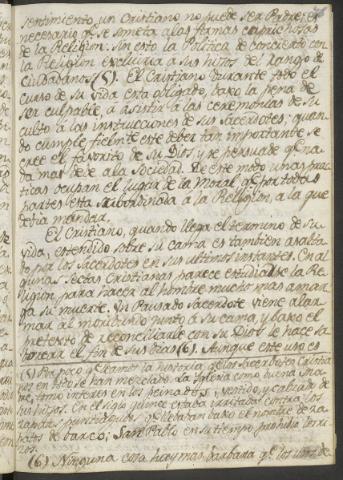 sentimiento, un Cristiano no puede ser Padre; es
necesario qe se someta a las formas caprichosas
de la Religion. Sin esto la Politica de concierto con
la Religion excluiria a sus hijos del rango de
Ciudadanos (5). El Cristiano durante todo el
curso de su vida esta obligado, baxo la pena de
ser culpable, á asistir a las ceremonias de su
culto á las instrucciones de sus Sacerdotes; quan
do cumple fielmte este deber tan importante, se
cree el favorito de su Dios, y se persuade qe na
da mas debe a la Sociedad. De este modo unas prac
ticas ocupan el lugar de la Moral, qe por todas
partes esta subordinada a la Religion, a la que
debia mandar.
El Cristiano, quando llega el termino de su
vida, estendido sobre su cama es tambien asalta
do por los Sacerdotes en sus ultimos instantes. En al
gunas Sectas Cristianas parece estudiarse la Re
ligion para hacer al hombre mucho mas amar
ga su muerte. Un Pausado Sacerdote viene a lar
mar al moribundo junto á su cama, y baxo el
pretexto de reconciliarle con su Dios le hace sa
borear el fin de sus dias (6). Aunque este uso es
(5) Por poco qe leamos la historia, qe los Sacerdotes Cristia
nos en todo se han mezclado. La Iglesia como buena Ma
re, tomó interes en los peinados, vestido, y calzado de
sus hijos. En el siglo quince estaba irritada contra los
zapatos puntiagudos, qe se llevaban baxo el nombre de za
patos de barco; San Pablo en su tiempo prohibia
(6) Ninguna cosa hay mas barbara qe los usos de